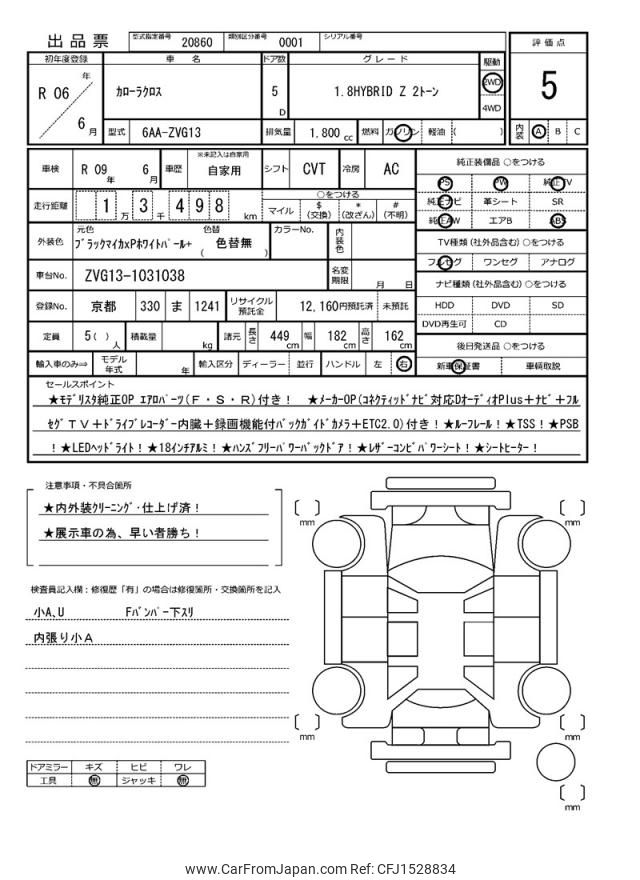 出品票 型式指定番号 20860 類別区分番号 0001 シリアル番号
評価点
5
内装 A B C
初年度登録 車名 ドア数 グレード 駆動
R 06 年 6 月
カローラクロス 5 D 1.8HYBRID Z 2トーン 2WD 4WD
型式 6AA-ZVG13 排気量 1,800 cc 燃料 ガソリン 軽油 ( )
車検 R 09 年 6 月 車歴 ※未記入は自家用 自家用 シフト CVT 冷房 AC
走行距離 1 万 3 千 4 9 8 km ○をつける マイル $ (交換) * (改ざん) # (不明)
外装色 元色 ブラックマイカxPホワイトパール+ 色替 ( 色替無 ) カラーNo. 内装色
車台No. ZVG13-1031038 名変期限 月 日
登録No. 京都 330 ま 1241 リサイクル預託金 12,160円預託済 未預託
定員 5 ( ) 人 積載量 kg 諸元 長さ 449 cm 幅 182 cm 高さ 162 cm
輸入車のみ⇒ モデル年式 年 輸入区分 ディーラー 並行 ハンドル 左 右
純正装備品 ○をつける
PS PW 純正TV
純正ナビ 革シート SR
純正AW エアB ABS
TV種類(社外品含む) ○をつける
フルセグ ワンセグ アナログ
ナビ種類(社外品含む) ○をつける
HDD DVD SD
DVD再生可 CD
後日発送品 ○をつける
新車保証書 車輌取説
セールスポイント
★モデリスタ純正OP エアロパーツ(F・S・R)付き! ★メーカーOP(コネクティッドナビ対応Dオーディオオ Plus+ナビ+フル
セグTV+ドライブレコーダー内臓+録画機能付バックガイドカメラ+ETC2.0)付き!★ルーフレール!★TSS!★PSB
!★LEDヘッドライト!★18インチアルミ!★ハンズフリーパワーバックドア!★レザーコンビパワーシート!★シートヒーター!
注意事項・不具合箇所
★内外装クリーニング・仕上げ済!
★展示車の為、早い者勝ち!
検査員記入欄:修復歴「有」の場合は修復箇所・交換箇所を記入
小A、U Fバンパー下スリ
内張り小A
ドアミラー キズ ヒビ ワレ
工具 無 ジャッキ 無
mm
mm
mm
mm
mm
www.CarFromJapan.com Ref: CFJ1528834